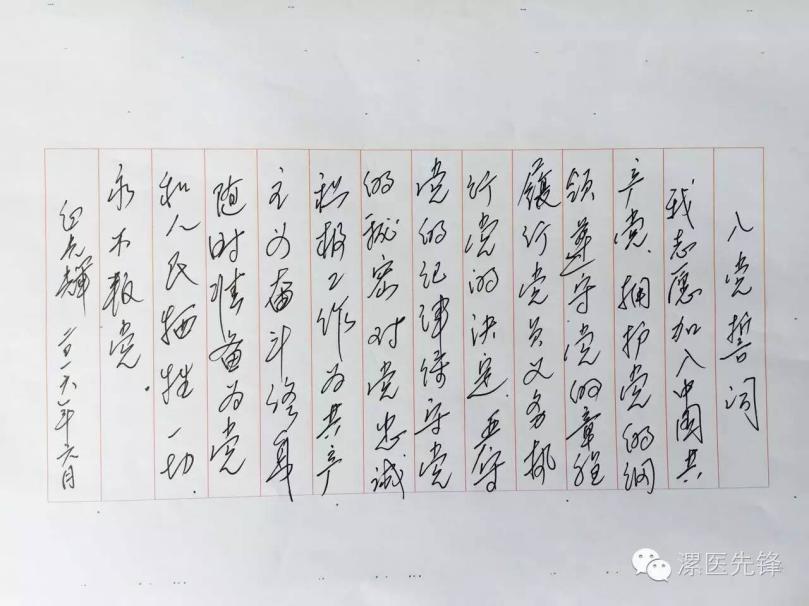 入党誓词
我志愿加入中国共
产党、拥护党的纲
领遵守党的章程
履行党员义务执
行党的决定.严守
党的纪律保守党
的秘密对党忠诚
积极工作为共产
主义奋斗终身
随时准备为党
和人民牺牲一切.
永不叛党.
年六月
漯医先锋